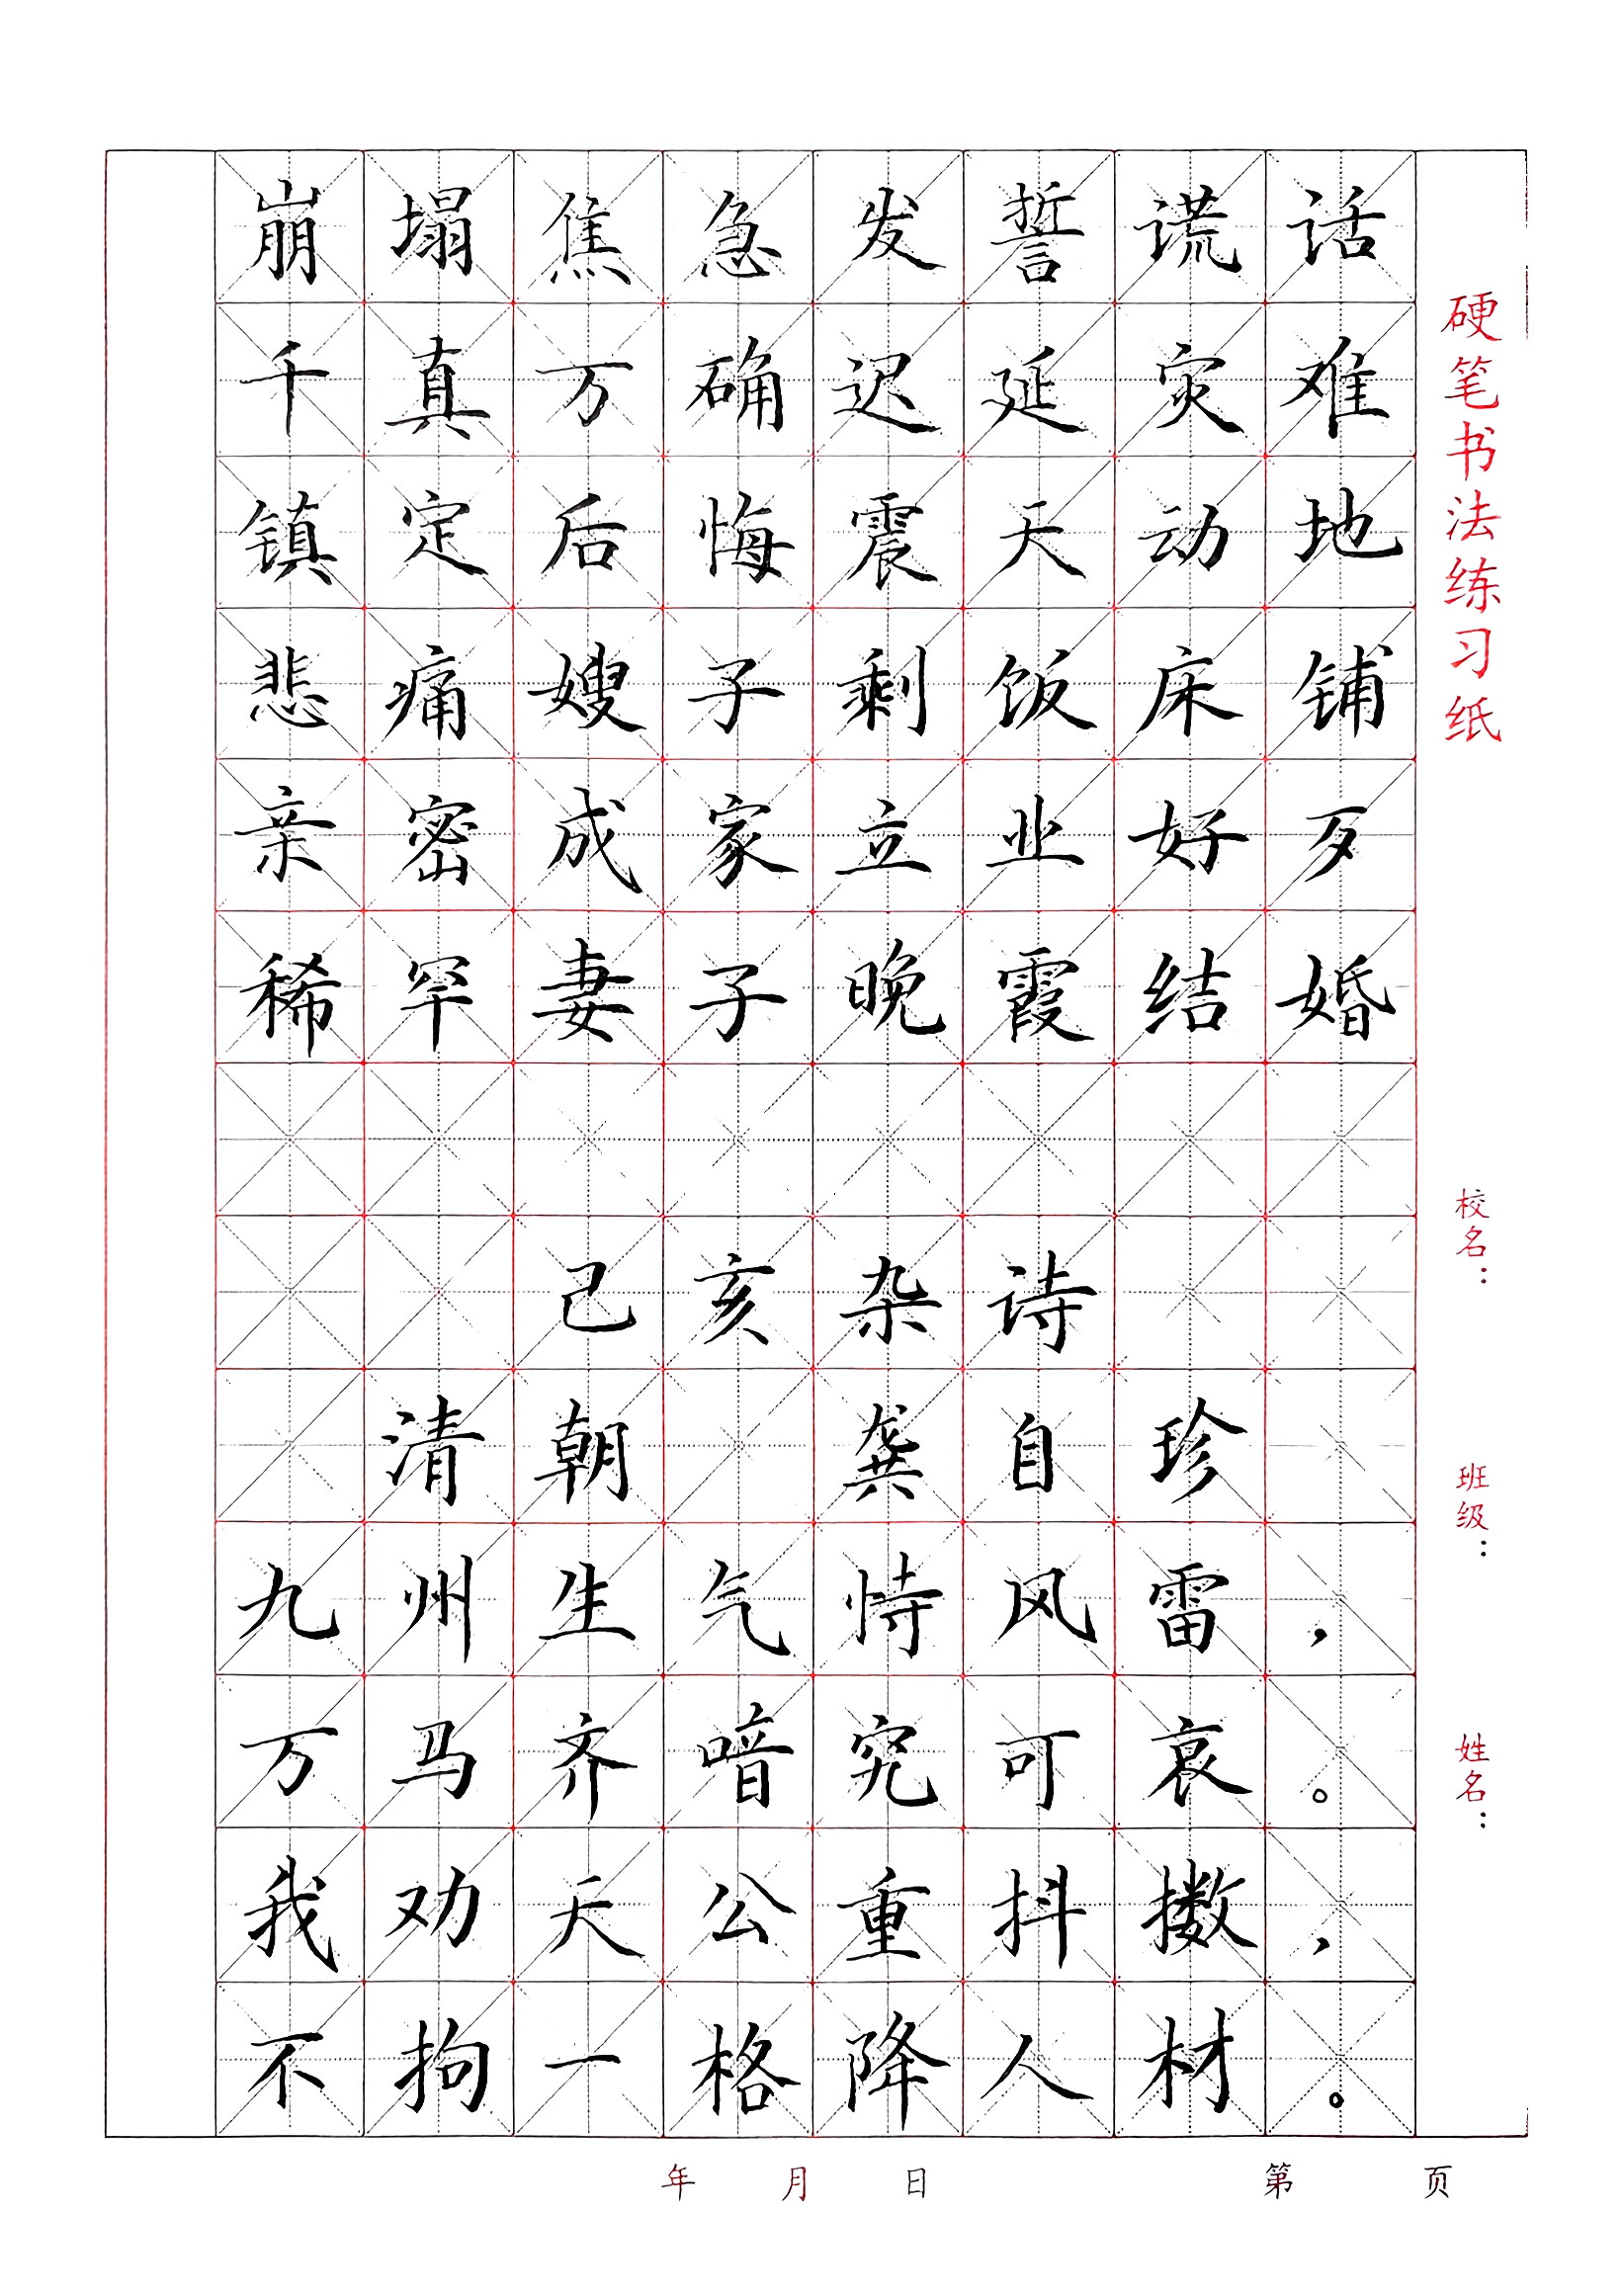 崩塌焦急发誓谎话
千真万确迟延灾难
镇定后悔震天动地
悲痛嫂子剩饭床铺
亲密成家立业好歹
稀罕妻子晚霞结婚
己亥杂诗
清朝 龚自珍
九州生气恃风雷，
万马齐喑究可哀。
我劝天公重抖擞，
不拘一格降人材。
硬笔书法练习纸
校名：
班级：
姓名：
年 月 日 第 页